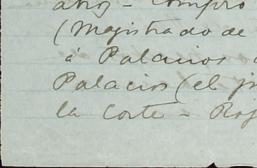 años - compró
(Magistrado de
á Palacios
Palacios (el
la Corte - Roj